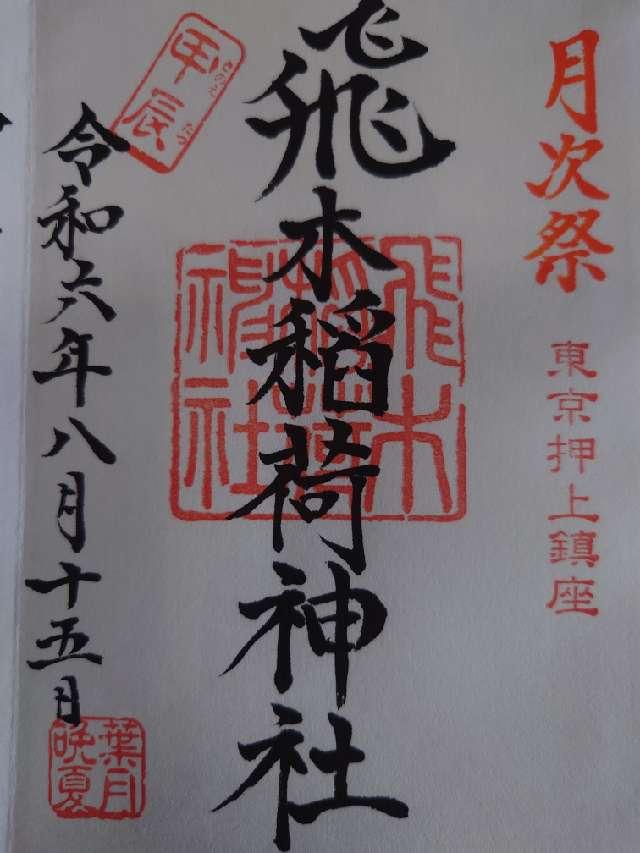 月次祭
東京押上鎮座
飛木稲荷神社
飛木
稲荷
神社
甲辰
きのえ たつ
令和六年八月十五日
葉月
晩夏